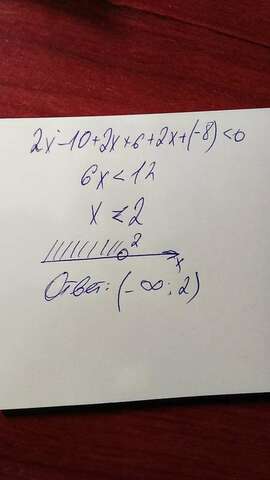 2x-10+2x+6+2x+(-8)<0
6x<12
x<2
2
x
Ответ: (-∞; 2)